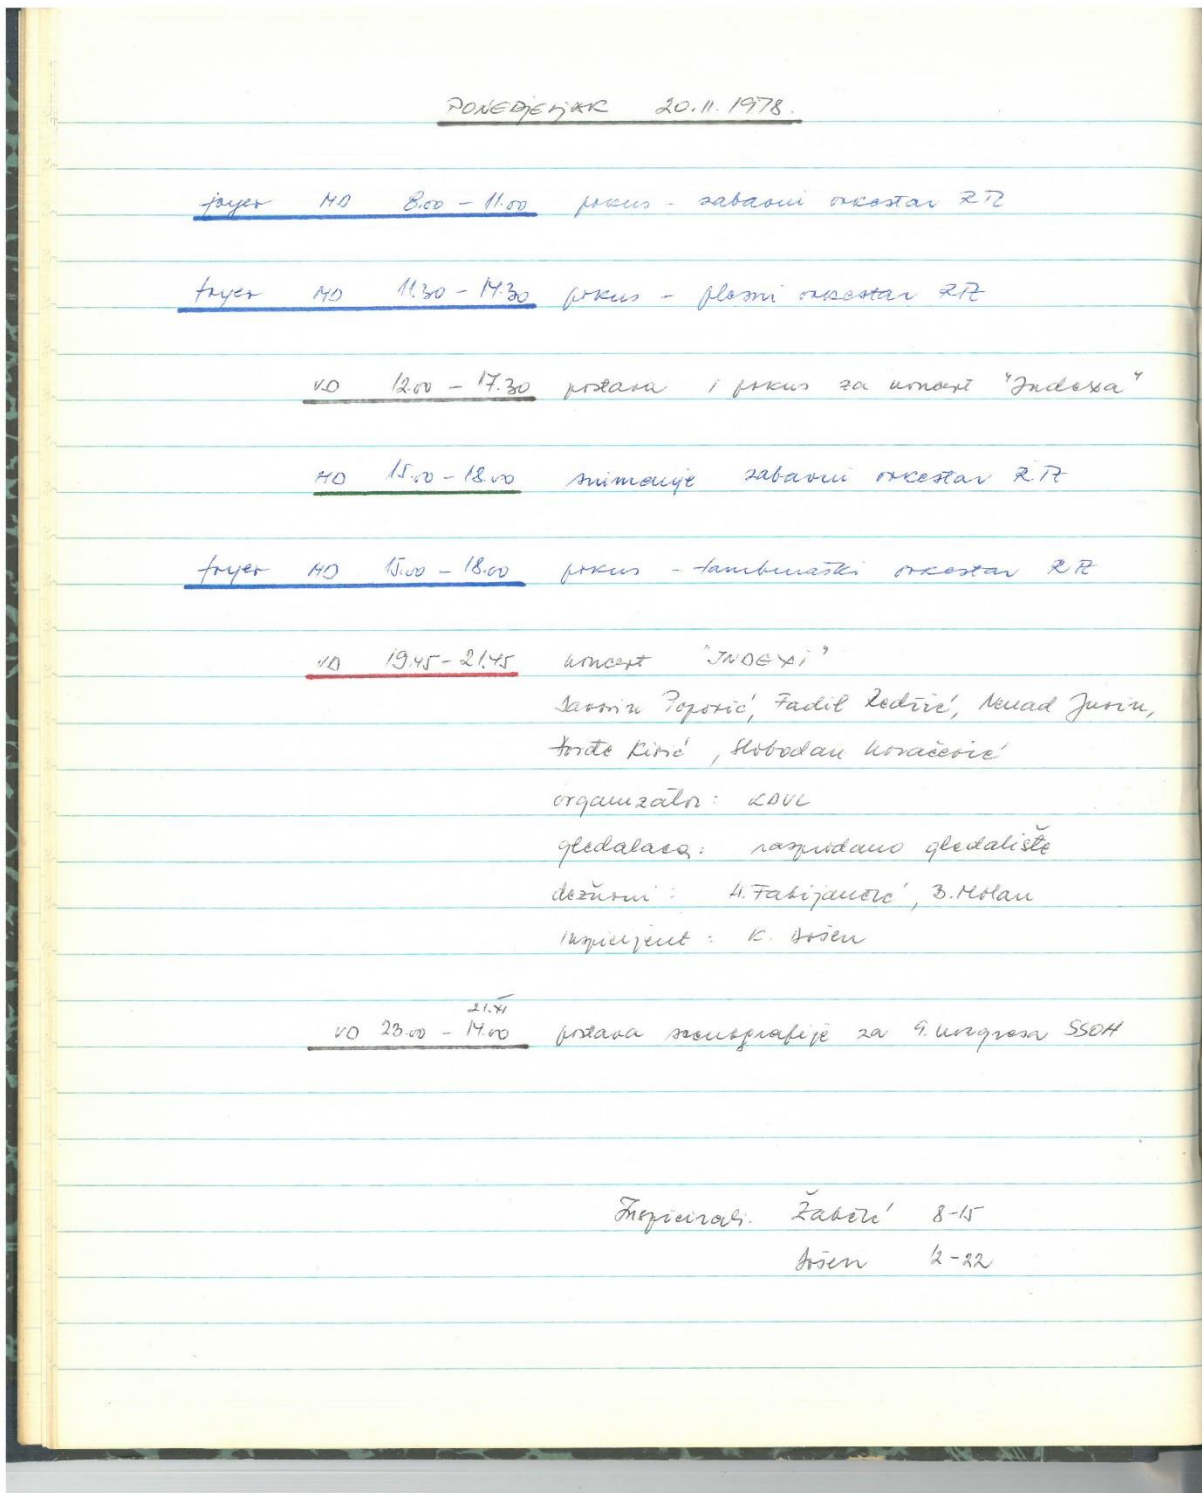 PONEDJELJAK 20.11.1978.
foyer MD 8.00 - 11.00 pokus - zabavni orkestar RTZ
foyer MD 11.30 - 14.30 pokus - plesni orkestar RTZ
VD 12.00 - 17.30 postava i pokus za koncert "Indexa"
MD 15.00 - 18.00 snimanje zabavni orkestar RTZ
foyer MD 15.00 - 18.00 pokus - tamburaški orkestar RTZ
VD 19.45 - 21.45 koncert "INDEXI"
Davorin Popović, Fadil Redžić, Nenad Jurin,
Đorđe Kisić, Slobodan Kovačević
organizator: KDVL
gledalaca: rasprodano gledalište
dežurni: H. Fabijančić, B. Molan
inspicijent: K. Došen
21.XI
VD 23.00 - 14.00 postava scenografije za 9. kongresa SSOH
Inspicirali: Žabčić 8-15
Došen 12-22